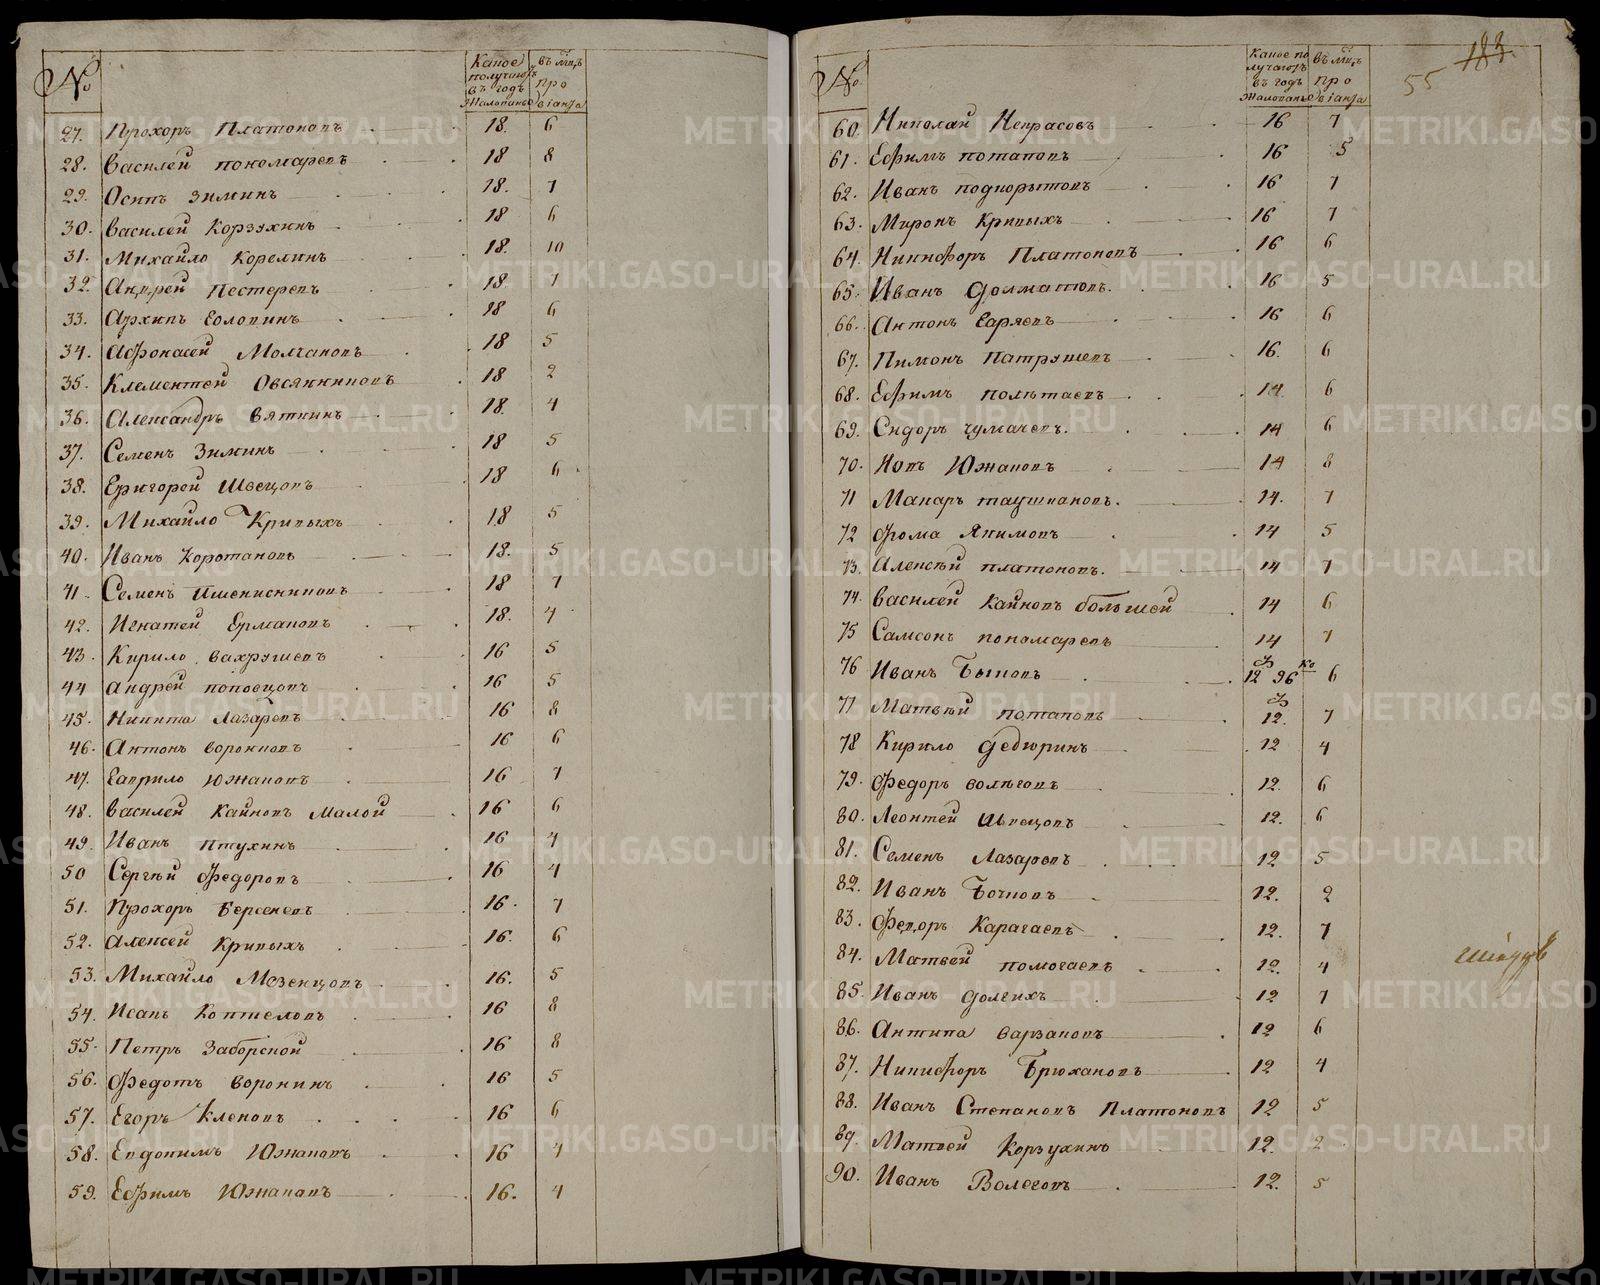 № Какое получаютъ въ годъ жалованье въ мцъ провіанта
27. Прохоръ Платоновъ 18. 6
28. Василей пономаревъ 18 8
29. Осипъ Зиминъ 18. 7
30. Василей Корзухинъ 18 6
31. Михайло Корелинъ 18. 10
32. Андрей Пестеревъ 18. 7
33. Архипъ Головинъ 18 6
34. Афонасей Молчановъ 18 5
35. Клементей Овсянниковъ 18 2
36. Александръ Вяткинъ 18. 4
37. Семенъ Зиминъ 18 5
38. Григорей Швецовъ 18 6
39. Михайло Кривыхъ 18 5
40. Иванъ Коротановъ 18. 5
41. Семенъ Пшенисниковъ 18 7
42. Игнатей Ермаковъ 18. 4
43. Кирило Вахрушевъ 16 5
44 Андрей поповцовъ 16 5
45. Никита Лазаревъ 16 8
46. Антонъ Воронковъ 16 6
47. Гаврило Южаковъ 16 7
48. Василей Кайковъ Малой 16 6
49. Иванъ Птухинъ 16 4
50 Сергѣй Федоровъ 16 4
51. Прохоръ Берсеневъ 16. 7
52. Алексей Кривыхъ 16. 6
53. Михайло Мезенцовъ 16. 5
54. Исакъ Коптеловъ 16 8
55. Петръ Заборской 16 8
56. Федотъ Воронинъ 16 5
57. Егоръ Кленовъ 16 6
58. Евдокимъ Южаковъ 16 4
59. Ефимъ Южаковъ 16. 4
183.
55
№ Какое получаютъ въ годъ жалованье въ мцъ провіанта
60. Николай Некрасовъ 16 7
61. Ефимъ потаповъ 16 5
62. Иванъ подкорытовъ 16 7
63. Миронъ Кривыхъ 16 7
64. Никифоръ Платоновъ 16 6
65. Иванъ Долматовъ. 16 5
66. Антонъ Гаряевъ 16 6
67. Пимонъ Патрушевъ 16. 6
68. Ефимъ полѣтаевъ 14. 6
69. Сидоръ чумачевъ. 14 6
70. Іовъ Южаковъ 14 8
71 Макаръ таушкановъ. 14. 7
72 Фома Якимовъ 14 5
73. Алексѣй платоновъ. 14 7
74. Василей Кайковъ большей 14 6
75 Самсонъ пономаревъ 14 7
76 Иванъ Быковъ 12 96 ко 6
77 Матвѣй потаповъ 12. 7
78 Кирило Дедюринъ 12 4
79. Федоръ волѣговъ 12. 6
80. Леонтей Швецовъ 12. 6
81. Семенъ Лазаревъ 12 5
82. Иванъ Бочковъ 12. 2
83. Федоръ Карагаевъ 12. 7
84. Матвей помогаевъ 12. 4
85. Иванъ Долгихъ 12 7
86. Антипа Варзаковъ 12 6
87. Никифоръ Брюхановъ 12 4
88. Иванъ Степановъ Платоновъ 12 5
89. Матвей Корзухинъ 12. 2
90. Иванъ Волеговъ 12. 5
METRIKI.GASO-URAL.RU